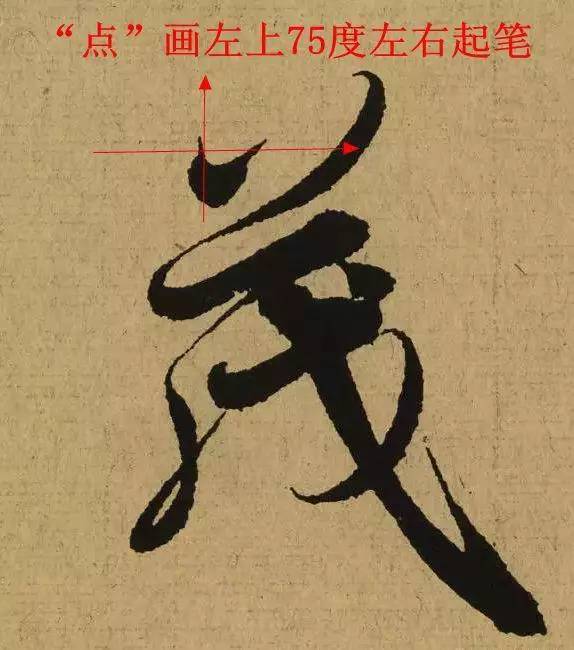 “点”画左上75度左右起笔
茂